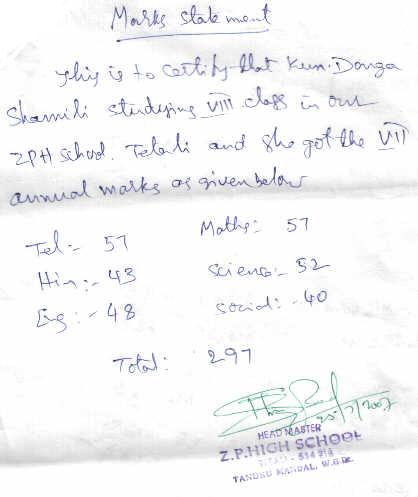 Marks statement
This is to certify that Kum. Donga
Sharmili studying VIII class in our
ZPH School. Tetali and she got the VII
annual marks as given below
Tel:- 57 Maths:- 57
Hin:- 43 Science:- 52
Eng:- 48 Social:- 40
Total: 297
25/7/2007
HEAD MASTER
Z.P.HIGH SCHOOL
TANUKU MANDAL, W.G.Dt.